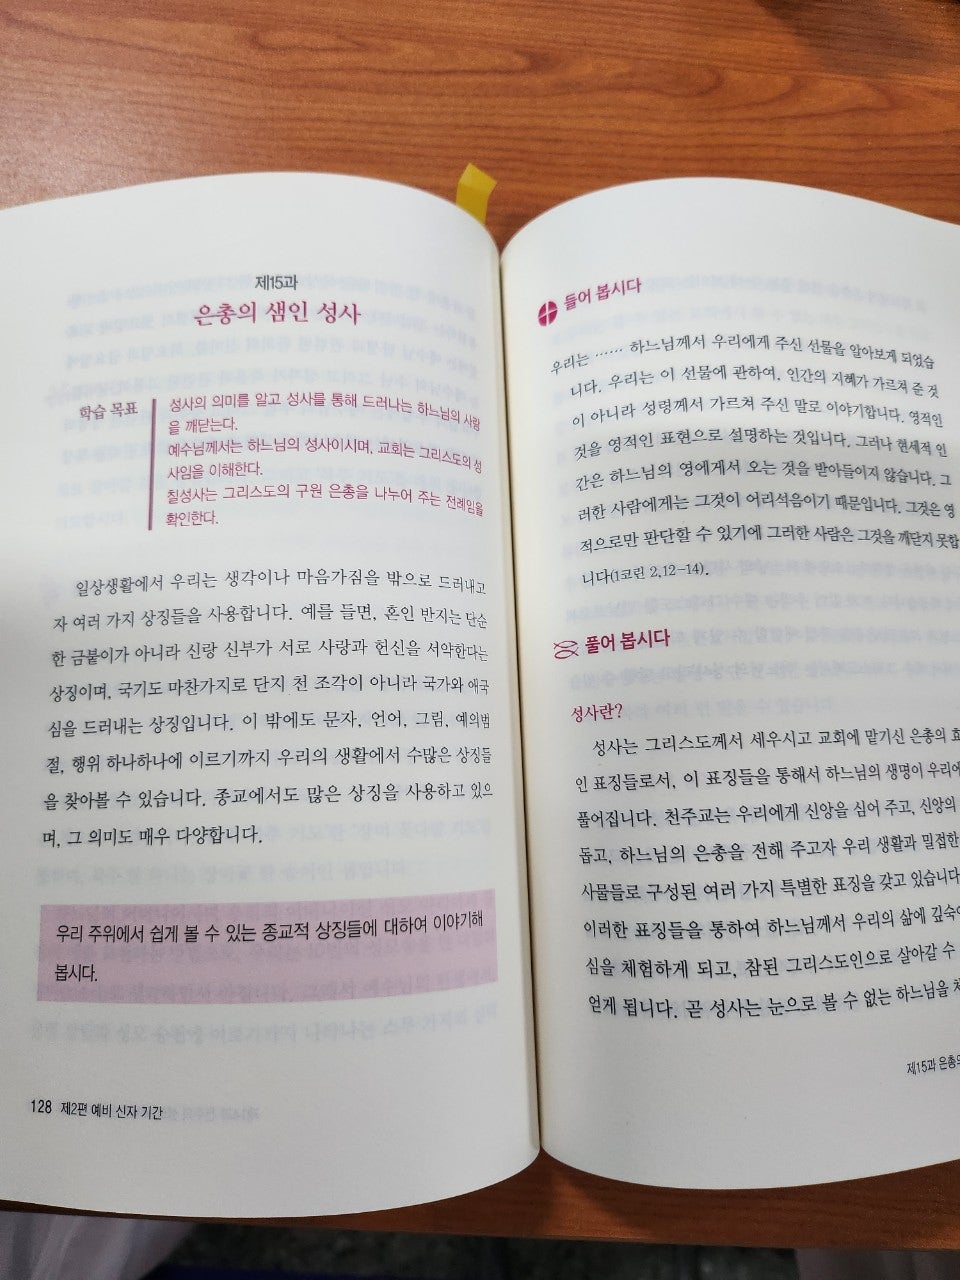 제15과
은총의 샘인 성사
학습 목표
성사의 의미를 알고 성사를 통해 드러나는 하느님의 사랑
을 깨닫는다.
예수님께서는 하느님의 성사이시며, 교회는 그리스도의 성
사임을 이해한다.
칠성사는 그리스도의 구원 은총을 나누어 주는 전례임을
확인한다.
일상생활에서 우리는 생각이나 마음가짐을 밖으로 드러내고
자 여러 가지 상징들을 사용합니다. 예를 들면, 혼인 반지는 단순
한 금붙이가 아니라 신랑 신부가 서로 사랑과 헌신을 서약한다는
상징이며, 국기도 마찬가지로 단지 천 조각이 아니라 국가와 애국
심을 드러내는 상징입니다. 이 밖에도 문자, 언어, 그림, 예의범
절, 행위 하나하나에 이르기까지 우리의 생활에서 수많은 상징들
을 찾아볼 수 있습니다. 종교에서도 많은 상징을 사용하고 있으
며, 그 의미도 매우 다양합니다.
우리 주위에서 쉽게 볼 수 있는 종교적 상징들에 대하여 이야기해
봅시다.
128 제2편 예비 신자 기간
들어 봅시다
우리는 …… 하느님께서 우리에게 주신 선물을 알아보게 되었습
니다. 우리는 이 선물에 관하여, 인간의 지혜가 가르쳐 준 것
이 아니라 성령께서 가르쳐 주신 말로 이야기합니다. 영적인
것을 영적인 표현으로 설명하는 것입니다. 그러나 현세적 인
간은 하느님의 영에게서 오는 것을 받아들이지 않습니다. 그
러한 사람에게는 그것이 어리석음이기 때문입니다. 그것은 영
적으로만 판단할 수 있기에 그러한 사람은 그것을 깨닫지 못합
니다(1코린 2,12-14).
풀어 봅시다
성사란?
성사는 그리스도께서 세우시고 교회에 맡기신 은총의 효
인 표징들로서, 이 표징들을 통해서 하느님의 생명이 우리에
풀어집니다. 천주교는 우리에게 신앙을 심어 주고, 신앙의
돕고, 하느님의 은총을 전해 주고자 우리 생활과 밀접한
사물들로 구성된 여러 가지 특별한 표징을 갖고 있습니다
이러한 표징들을 통하여 하느님께서 우리의 삶에 깊숙이
심을 체험하게 되고, 참된 그리스도인으로 살아갈 수
얻게 됩니다. 곧 성사는 눈으로 볼 수 없는 하느님을
제15과 은총의